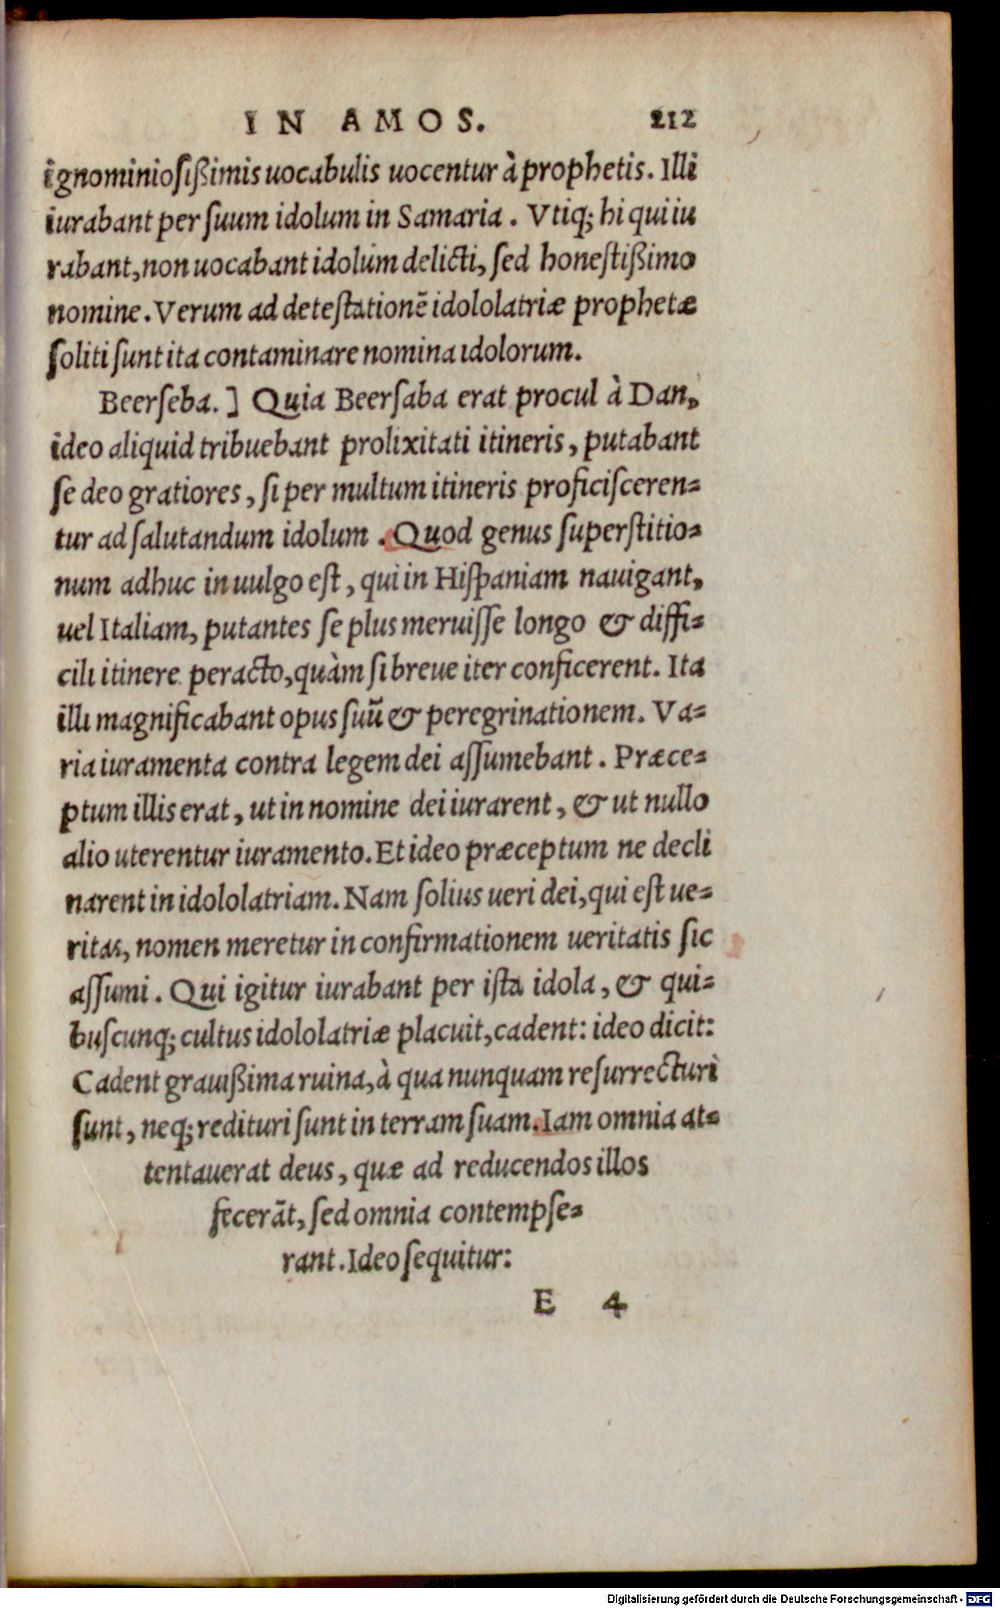 IN AMOS. 212
ignominiosißimis uocabulis uocentur à prophetis. Illi
iurabant per suum idolum in Samaria. Vtiq; hi qui iu
rabant, non uocabant idolum delicti, sed honestißimo
nomine. Verum ad detestationē idololatriæ prophetæ
soliti sunt ita contaminare nomina idolorum.
Beerseba.] Quia Beersaba erat procul à Dan,
ideo aliquid tribuebant prolixitati itineris, putabant
se deo gratiores, si per multum itineris proficisceren-
tur ad salutandum idolum. Quod genus superstitio-
num adhuc in uulgo est, qui in Hispaniam nauigant,
uel Italiam, putantes se plus meruisse longo & diffi-
cili itinere peracto, quàm si breue iter conficerent. Ita
illi magnificabant opus suū & peregrinationem. Va-
ria iuramenta contra legem dei assumebant. Præce-
ptum illis erat, ut in nomine dei iurarent, & ut nullo
alio uterentur iuramento. Et ideo præceptum ne decli
narent in idololatriam. Nam solius ueri dei, qui est ue-
ritas, nomen meretur in confirmationem ueritatis sic
assumi. Qui igitur iurabant per ista idola, & qui-
buscunq; cultus idololatriæ placuit, cadent: ideo dicit:
Cadent grauißima ruina, à qua nunquam resurrecturi
sunt, neq; redituri sunt in terram suam. Iam omnia at-
tentauerat deus, quæ ad reducendos illos
fecerāt, sed omnia contempse-
rant. Ideo sequitur:
E 4
Digitalisierung gefördert durch die Deutsche Forschungsgemeinschaft - DFG